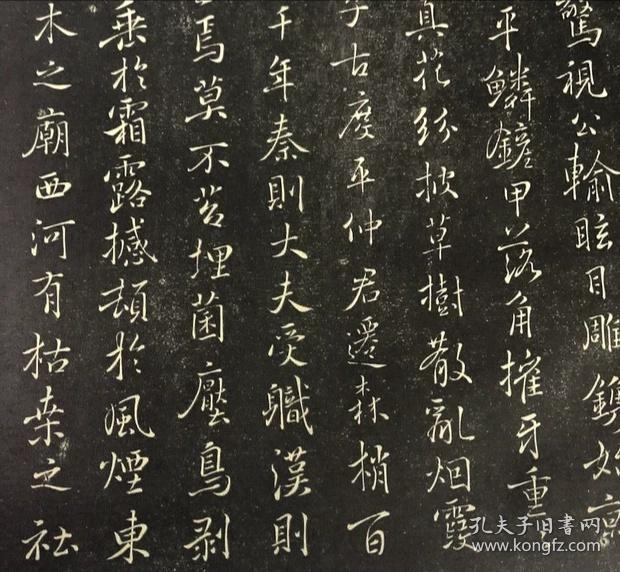 驚視公輸眩目雕鐫始
平鱗鏟甲落角摧牙重
真花紛披草樹散亂烟霞
子古度平仲君遷森梢百
千年秦則大夫受職漢則
焉莫不苔埋菌壓鳥剥
垂於霜露撼頓於風煙東
木之廟西河有枯桒之社
孔夫子旧书网
www.kongfz.com